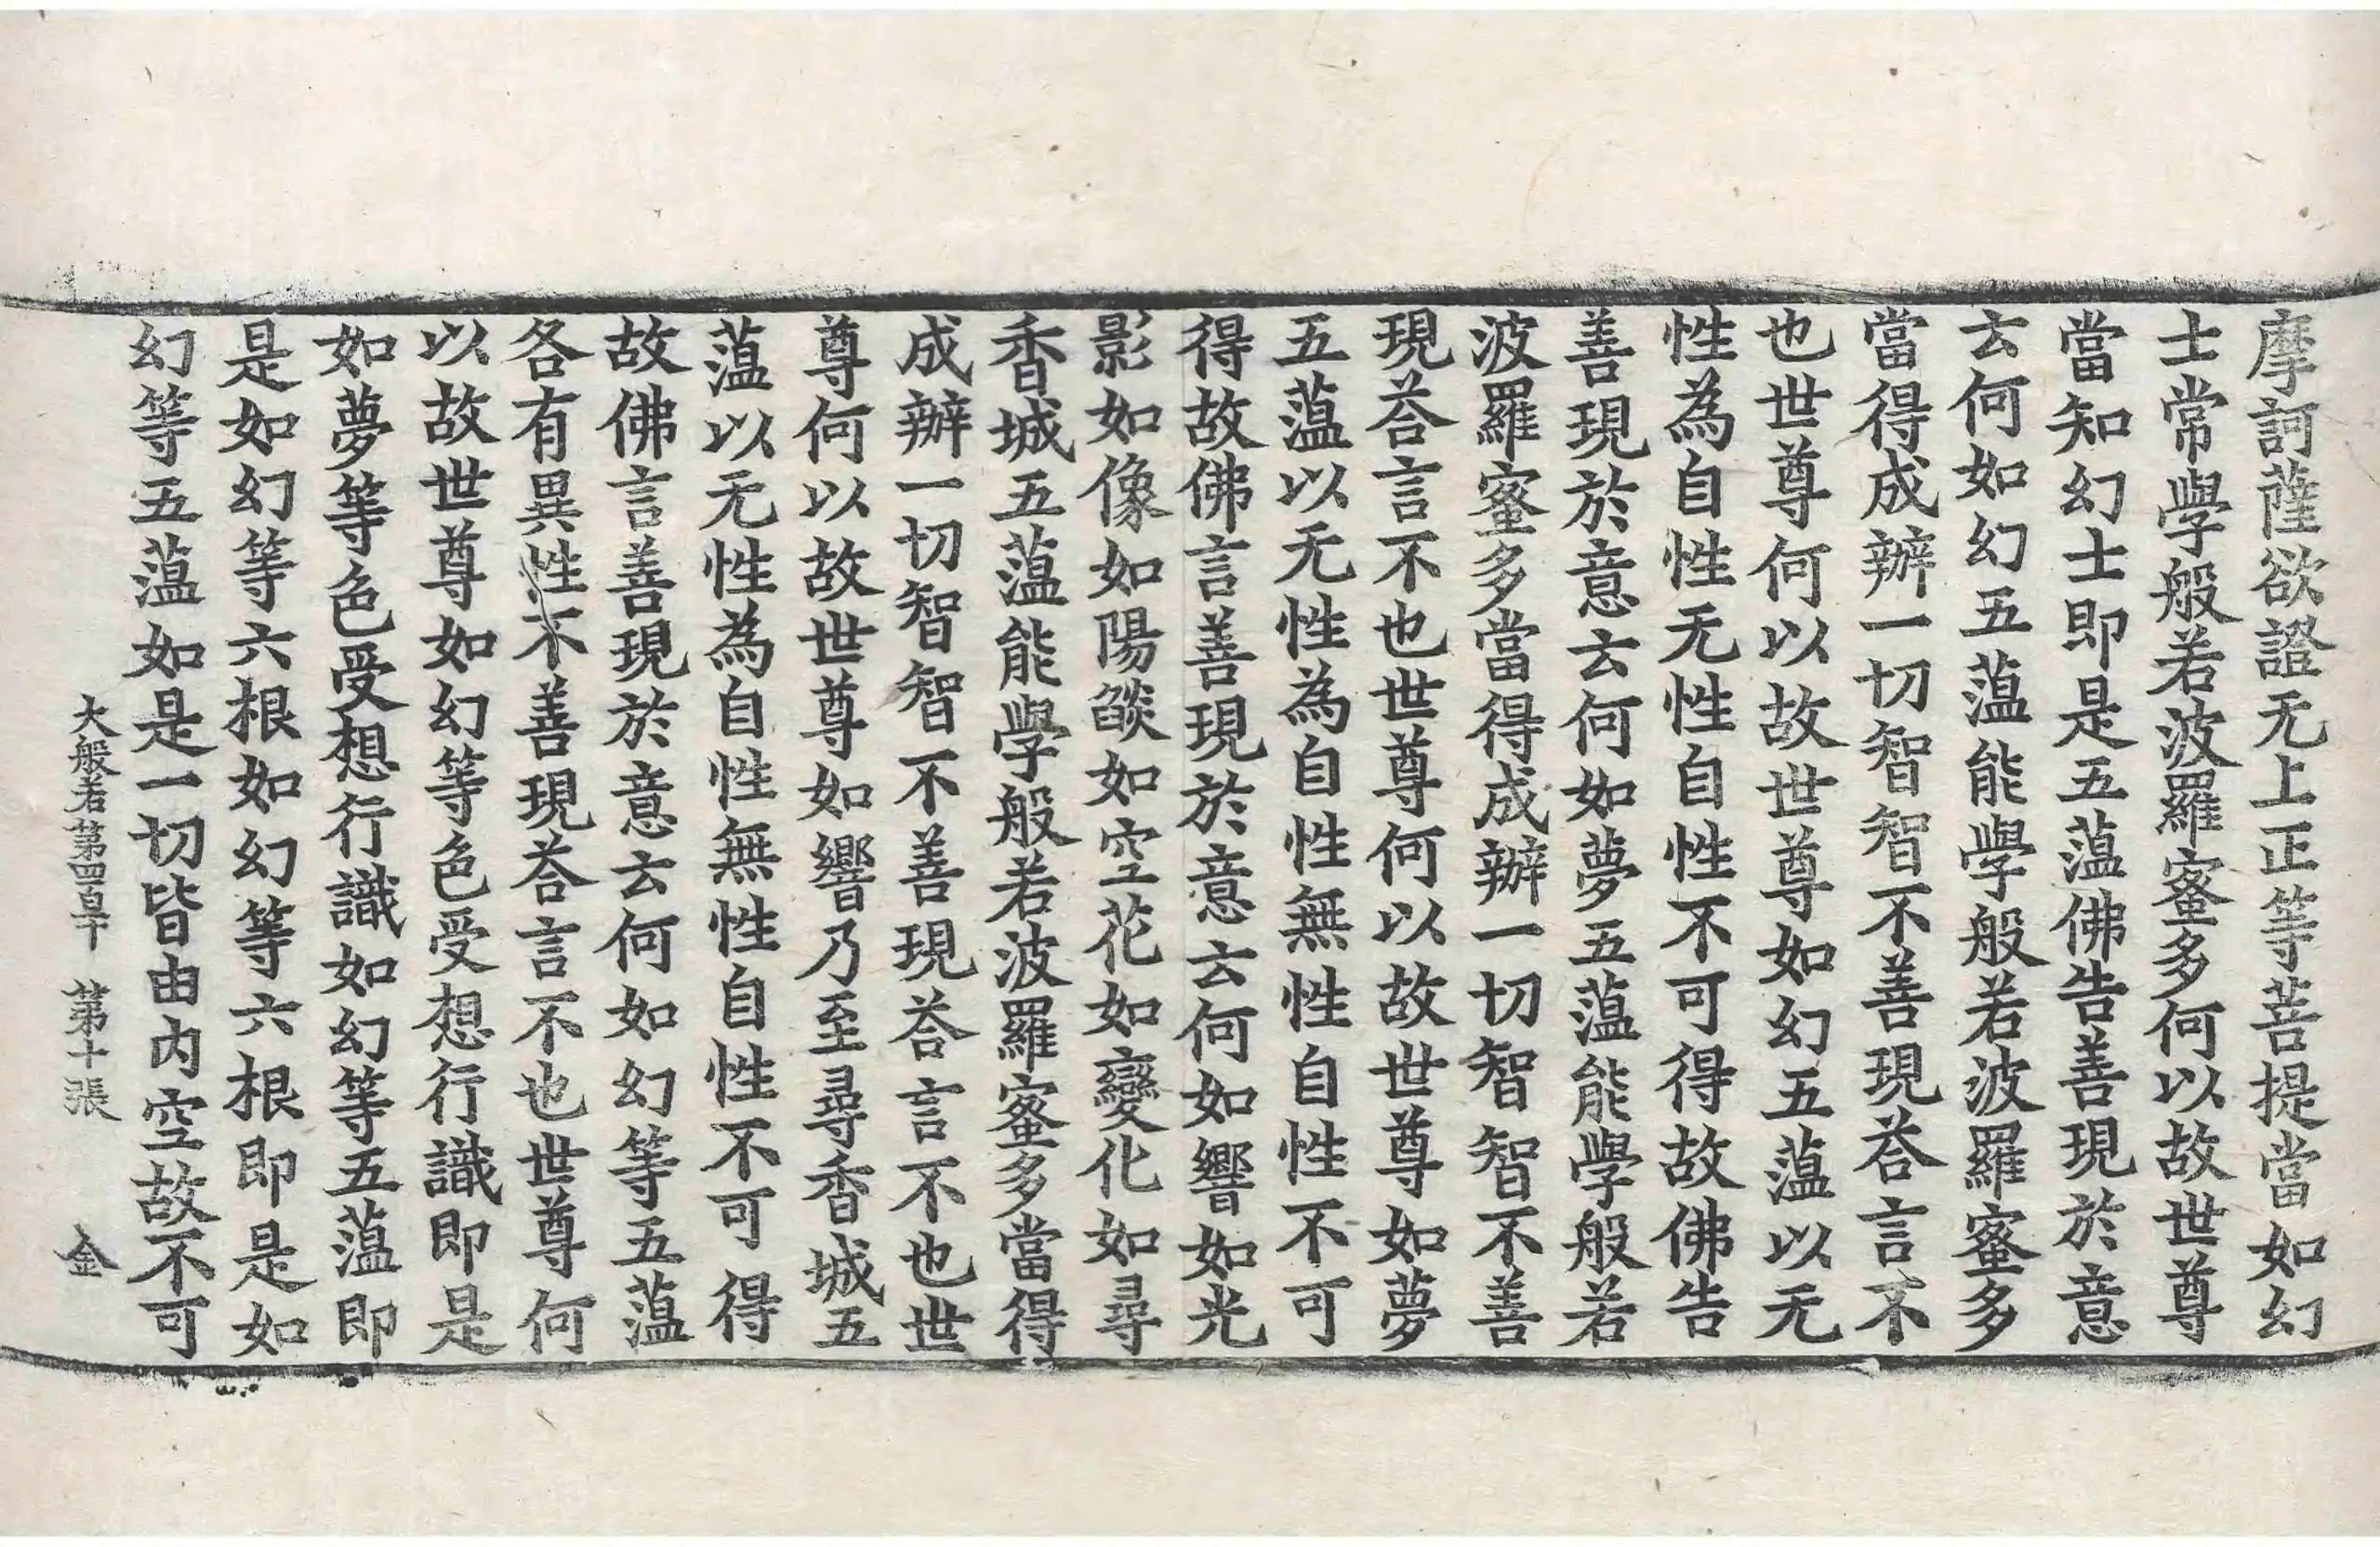 摩訶薩欲證无上正等菩提當如幻
士常學般若波羅蜜多何以故世尊
當知幻士即是五蕰佛告善現於意
云何如幻五蕰能學般若波羅蜜多
當得成辦一切智智不善現荅言不
也世尊何以故世尊如幻五蕰以无
性為自性无性自性不可得故佛告
善現於意云何如夢五蕰能學般若
波羅蜜多當得成辦一切智智不善
現荅言不也世尊何以故世尊如夢
五蕰以无性為自性無性自性不可
得故佛言善現於意云何如響如光
影如像如陽燄如空花如變化如尋
香城五蕰能學般若波羅蜜多當得
成辦一切智智不善現荅言不也世
尊何以故世尊如響乃至尋香城五
蕰以无性為自性無性自性不可得
故佛言善現於意云何如幻等五蕰
各有異性不善現荅言不也世尊何
以故世尊如幻等色受想行識即是
如夢等色受想行識如幻等五蕰即
是如幻等六根如幻等六根即是如
幻等五蕰如是一切皆由内空故不可
大般若第四百十 第十張 金